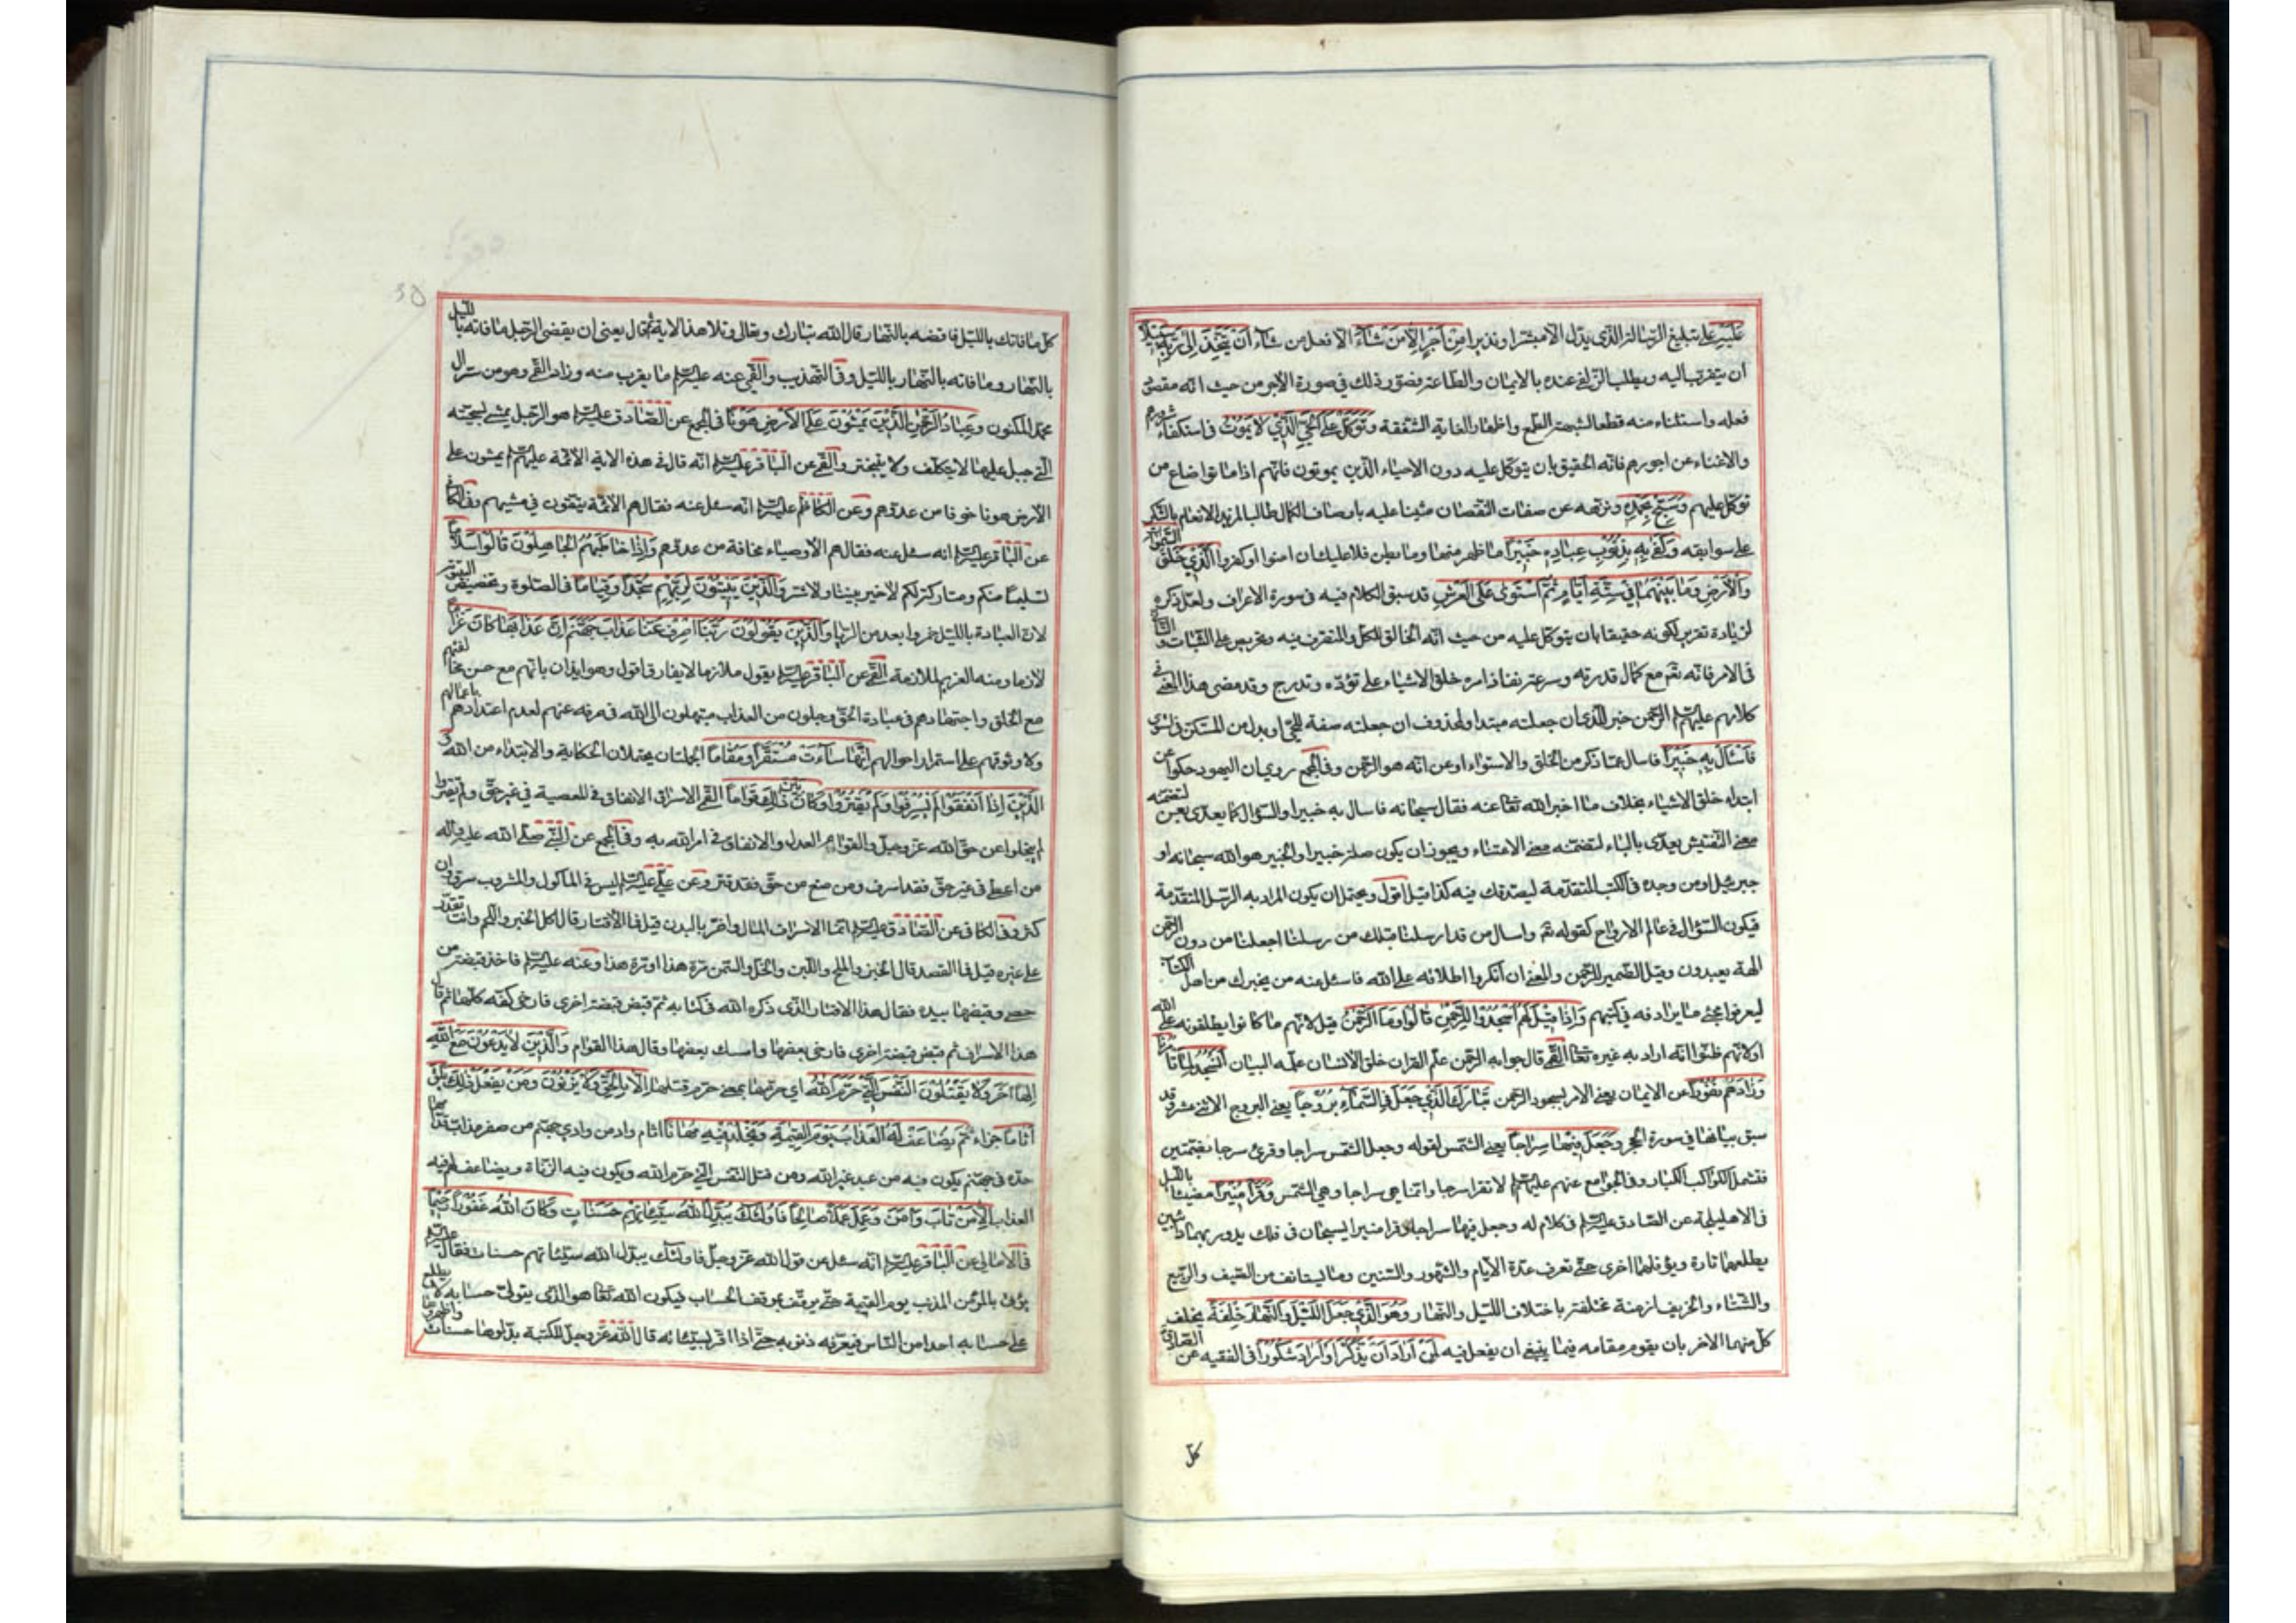 عَلَيْهِ على تبليغ الرسالة الذي يدل الا مبشرا ونذيرا مِنْ اَجْرٍ اِلّا مَنْ شاءَ الا فعل من شاء اَنْ يَتَّخِذَ اِلى رَبِّهِ سَبيلاً
ان يتقرب اليه ويطلب الزلفى عنده بالايمان والطاعة فصور ذلك في صورة الاجر من حيث انه مقصود
فعله واستثناء منه قطعا لشبهة الطمع واظهارا لغاية الشفقة وَتَوَكَّلْ عَلَى الْحَيِّ الَّذي لا يَمُوتُ في استكفاء شرورهم
والاغناء عن اجورهم فانه الحقيق بان يتوكل عليه دون الاحياء الذين يموتون فانهم اذا ماتوا ضاع من
توكل عليهم وَسَبِّحْ بِحَمْدِهِ ونزهه عن صفات النقصان مثنيا عليه باوصاف الكمال طالبا لمزيد الانعام بالشكر
على سوابقه وَكَفى بِهِ بِذُنُوبِ عِبادِهِ خَبيراً ما ظهر منها وما بطن فلا عليك ان امنوا او كفروا اَلَّذي خَلَقَ السَّمواتِ
وَالْاَرْضَ وَما بَيْنَهُما في سِتَّةِ اَيّامٍ ثُمَّ اسْتَوى عَلَى الْعَرْشِ قد سبق الكلام فيه في سورة الاعراف ولعل ذكره
لزيادة تقرير لكونه حقيقا بان يتوكل عليه من حيث انه الخالق للكل والمتصرف فيه وتحريص على الثبات والتأني
في الامر فانه تع مع كمال قدرته وسرعة نفاذ امره خلق الاشياء على تؤدة وتدرج وقد مضى هذا المعنى في
كلامهم عليهم السلام الرحمن خبر للذي ان جعلته مبتدا ولمحذوف ان جعلته صفة للحي او بدل من المستكن في استوى
فَاسْئَلْ بِهِ خَبيراً فاسأل عما ذكر من الخلق والاستواء او عن انه هو الرحمن وفي المجمع روي ان اليهود حكوا عن
ابتداء خلق الاشياء بخلاف ما اخبر الله تعا عنه فقال سبحانه فاسال به خبيرا والسؤال كما يعدى بعن لتضمنه
معنى التفتيش يعدى بالباء لتضمنه معنى الاعتناء ويجوز ان يكون صلة خبيرا والخبير هو الله سبحانه او
جبرئيل او من وجده في الكتب المتقدمة ليصدقك فيه كذا قيل اقول ويحتمل ان يكون المراد به الرسل المتقدمة
فيكون السؤال في عالم الارواح كقوله تع واسال من قد ارسلنا قبلك من رسلنا اجعلنا من دون الرحمن
الهة يعبدون وقيل الضمير للرحمن والمعنى ان انكروا اطلاقه على الله فاسئل عنه من يخبرك من اهل الكتاب
ليعرفوا مجئ ما يرادفه في كتبهم وَاِذا قيلَ لَهُمُ اسْجُدُوا لِلرَّحْمنِ قالُوا وَمَا الرَّحْمنُ قيل لانهم ما كانوا يطلقونه على الله
او لانهم ظنوا انه اراد به غيره تعا القمي قال جوابه الرحمن علم القران خلق الانسان علمه البيان اَنَسْجُدُ لِما تَأْمُرُنا
وَزادَهُمْ نُفُوراً عن الايمان يعني الامر بسجود الرحمن تَبارَكَ الَّذي جَعَلَ فِي السَّماءِ بُرُوجاً يعني البروج الاثني عشر وقد
سبق بيانها في سورة الحجر وَجَعَلَ فيها سِراجاً يعني الشمس لقوله وجعل الشمس سراجا وقرئ سرجا بضمتين
فتشمل الكواكب الكبار وفي الجوامع عنهم عليهم السلام لا تقرا سرجا وانما هي سراجا وهي الشمس وَقَمَراً مُنيراً مضيئا بالليل
في الاهليلجة عن الصادق عليه السلام في كلام له وجعل فيها سراجا وقمرا منيرا يسبحان في فلك يدور بهما دائبين
يطلعهما تارة ويؤفلهما اخرى حتى تعرف عدة الايام والشهور والسنين وما يستانف من الصيف والربيع
والشتاء والخريف ازمنة مختلفة باختلاف الليل والنهار وَهُوَ الَّذي جَعَلَ اللَّيْلَ وَالنَّهارَ خِلْفَةً يخلف
كل منهما الاخر بان يقوم مقامه فيما ينبغي ان يفعل فيه لِمَنْ اَرادَ اَنْ يَذَّكَّرَ اَوْ اَرادَ شُكُوراً في الفقيه عن الصادق
كل
كل ما فاتك بالليل فاقضه بالنهار قال الله تبارك وتعالى وتلا هذا الاية ثم قال يعني ان يقضي الرجل ما فاته بالليل
بالنهار وما فاته بالنهار بالليل وفي التهذيب والقمي عنه عليه السلام ما يقرب منه وزاد القمي وهو من سر ال
محمد المكنون وَعِبادُ الرَّحْمنِ الَّذينَ يَمْشُونَ عَلَى الْاَرْضِ هَوْناً في المجمع عن الصادق عليه السلام هو الرجل يمشي بسجيته
التي جبل عليها لا يتكلف ولا يتبختر والقمي عن الباقر عليه السلام انه قال في هذه الاية الائمة عليهم السلام يمشون على
الارض هونا خوفا من عدوهم وعن الكاظم عليه السلام انه سئل عنه فقال هم الائمة يتقون في مشيهم وفي الكافي
عن الباقر عليه السلام انه سئل عنه فقال هم الاوصياء مخافة من عدوهم وَاِذا خاطَبَهُمُ الْجاهِلُونَ قالُوا سَلاماً
تسليما منكم ومتاركة لكم لا خير بيننا ولا شر وَالَّذينَ يَبيتُونَ لِرَبِّهِمْ سُجَّداً وَقِياماً في الصلوة وتخصيص البيتوتة
لان العبادة بالليل احمز وابعد من الريا وَالَّذينَ يَقُولُونَ رَبَّنَا اصْرِفْ عَنّا عَذابَ جَهَنَّمَ اِنَّ عَذابَها كانَ غَراماً
لازما ومنه الغريم لملازمته القمي عن الباقر عليه السلام يقول ملازما لا يفارق اقول وهو ايذان بانهم مع حسن مخالفتهم
مع الخلق واجتهادهم في عبادة الحق وجلون من العذاب مبتهلون الى الله في صرفه عنهم لعدم اعتدادهم باعمالهم
ولا وثوقهم على استمرار احوالهم اِنَّها ساءَتْ مُسْتَقَرًّا وَمُقاماً الجملتان يحتملان الحكاية والابتداء من الله وَ
الَّذينَ اِذا اَنْفَقُوا لَمْ يُسْرِفُوا وَلَمْ يَقْتُرُوا وَكانَ بَيْنَ ذلِكَ قَواماً القمي الاسراف الانفاق في المعصية في غير حق ولم يقتروا
لم يبخلوا عن حق الله عز وجل والقوام العدل والانفاق في امر الله به وفي المجمع عن النبي صلى الله عليه واله
من اعطى في غير حق فقد اسرف ومن منع من حق فقد قتر وعن علي عليه السلام ليس في الماكول والمشروب سرف وان
كثر وفي الكافي عن الصادق عليه السلام انما الاسراف المال واضر بالبدن قيل فما الاقتار قال اكل الخبز والملح وانت تقدر
على غيره قيل فما القصد قال الخبز والملح واللبن والخل والسمن مرة هذا ومرة هذا وعنه عليه السلام فاخذ قبضة من
حصى وقبضها بيده فقال هذا الاقتار الذي ذكره الله في كتابه ثم قبض قبضة اخرى فارخى كفه كلها ثم قال
هذا الاسراف ثم قبض قبضة اخرى فارخى بعضها وامسك بعضها وقال هذا القوام وَالَّذينَ لا يَدْعُونَ مَعَ اللهِ
اِلهاً اخَرَ وَلا يَقْتُلُونَ النَّفْسَ الَّتي حَرَّمَ اللهُ اي حرمها بمعنى حرم قتلها اِلّا بِالْحَقِّ وَلا يَزْنُونَ وَمَنْ يَفْعَلْ ذلِكَ يَلْقَ
اَثاماً جزاء اثم يُضاعَفْ لَهُ الْعَذابُ يَوْمَ الْقِيمَةِ وَيَخْلُدْ فيهِ مُهاناً اثام واد من وادي جهنم من صفر مذاب قدامها
حدة في جهنم يكون فيه من عبد غير الله ومن قتل النفس التي حرم الله ويكون فيه الزناة ويضاعف لهم فيه
العذاب اِلّا مَنْ تابَ وَامَنَ وَعَمِلَ عَمَلاً صالِحاً فَاُولئِكَ يُبَدِّلُ اللهُ سَيِّئاتِهِمْ حَسَناتٍ وَكانَ اللهُ غَفُوراً رَحيماً
في الامالي عن الباقر عليه السلام انه سئل عن قول الله عز وجل فاولئك يبدل الله سيئاتهم حسنات فقال عليه السلام
يؤتى بالمؤمن المذنب يوم القيمة حتى يوقف بموقف الحساب فيكون الله تعا هو الذي يتولى حسابه لا يطلع
على حسابه احدا من الناس فيعرفه ذنوبه حتى اذا اقر بسيئاته قال الله عز وجل للكتبة بدلوها حسنات واظهروها